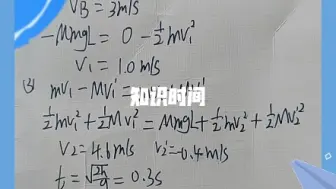 VB = 3m/s
-MmgL = 0 - ½mv₁²
V₁ = 1.0m/s
(3) mv₁ - Mv₁'
知识时间
½mv₁² + ½Mv₁'² = MmgL + ½mv₂² + ½Mv₂'²
V₂ = 4.6m/s V₂' = -0.4m/s
t₂ = √2h/g = 0.3s